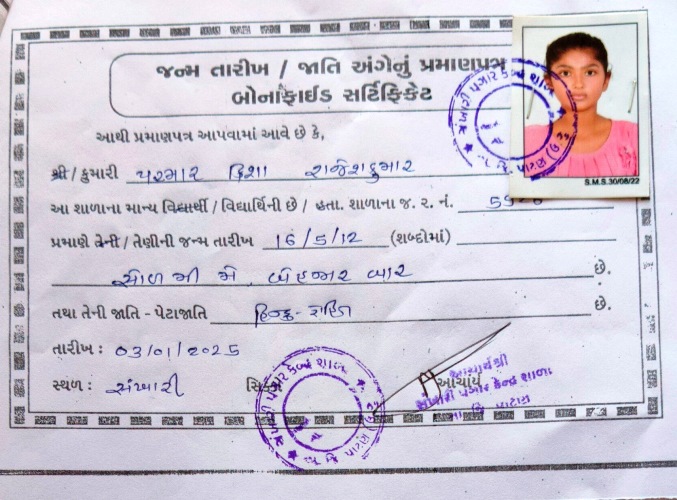 જન્મ તારીખ / જાતિ અંગેનું પ્રમાણપત્ર
બોનાફાઈડ સર્ટિફિકેટ
આથી પ્રમાણપત્ર આપવામાં આવે છે કે,
શ્રી / કુમારી પરમાર દિશા રાજેશકુમાર
આ શાળાના માન્ય વિદ્યાર્થી / વિદ્યાર્થિની છે / હતા. શાળાના જ. ર. નં.
પ્રમાણે તેની / તેણીની જન્મ તારીખ 16/5/12 (શબ્દોમાં)
સોળમી મે બેહજાર બાર છે.
તથા તેની જાતિ - પેટાજાતિ હિન્દુ - છે.
તારીખ : 03/01/2025
સ્થળ : સંખારી સિક્કો આચાર્ય
આચાર્યશ્રી
સંખારી પગાર કેન્દ્ર શાળા
પાટણ
S.M.S. 30/08/22
સંખારી પગાર કેન્દ્ર શાળા
સંખારી પગાર કેન્દ્ર શાળા